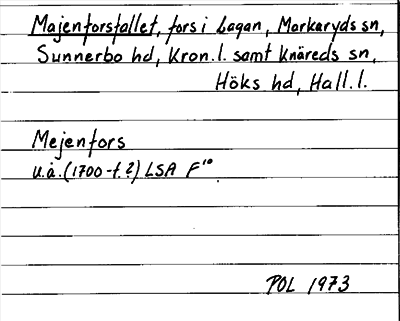 Majenforsfallet, fors i Lagan, Markaryds sn,
Sunnerbo hd, Kron.l. samt Knäreds sn,
Höks hd, Hall.l.
Mejenfors
u.å. (1700-t.?) LSA F¹⁰
POL 1973